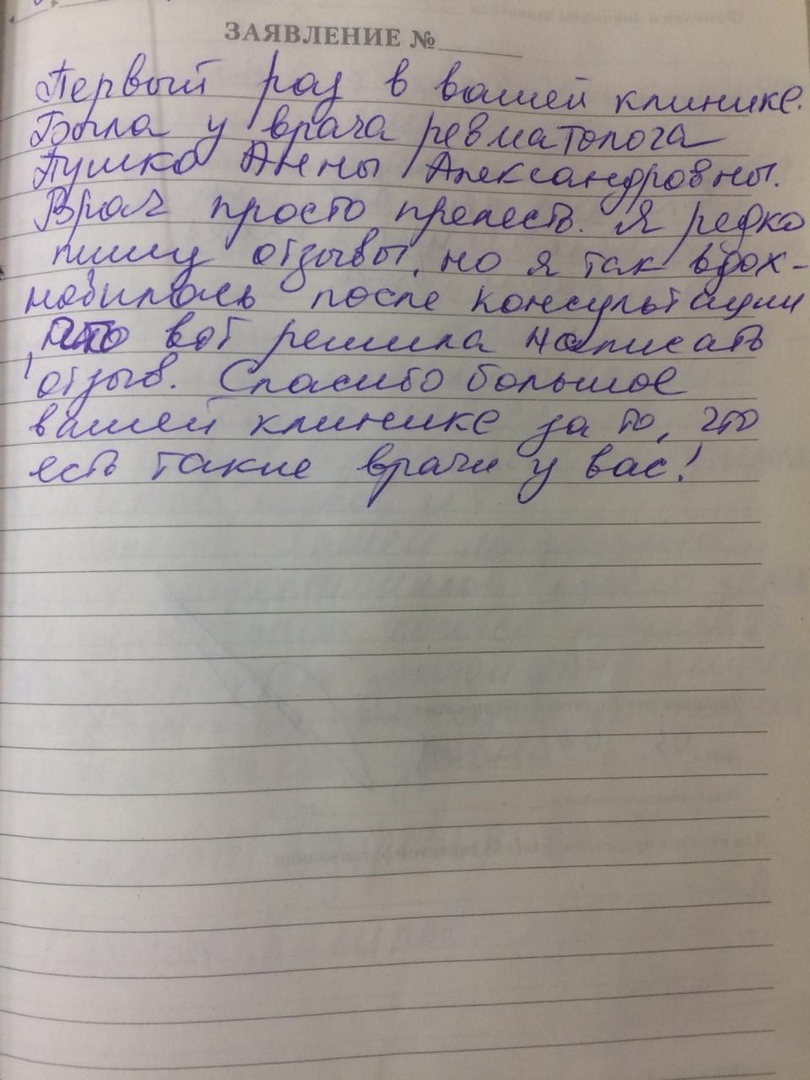 ЗАЯВЛЕНИЕ №
Первый раз в вашей клинике.
Была у врача ревматолога
Пушко Анны Александровны.
Врач просто прелесть. Я редко
пишу отзывы, но я так вдох-
новилась после консультации
что вот решила написать
отзыв. Спасибо большое
вашей клинике за то, что
есть такие врачи у вас!